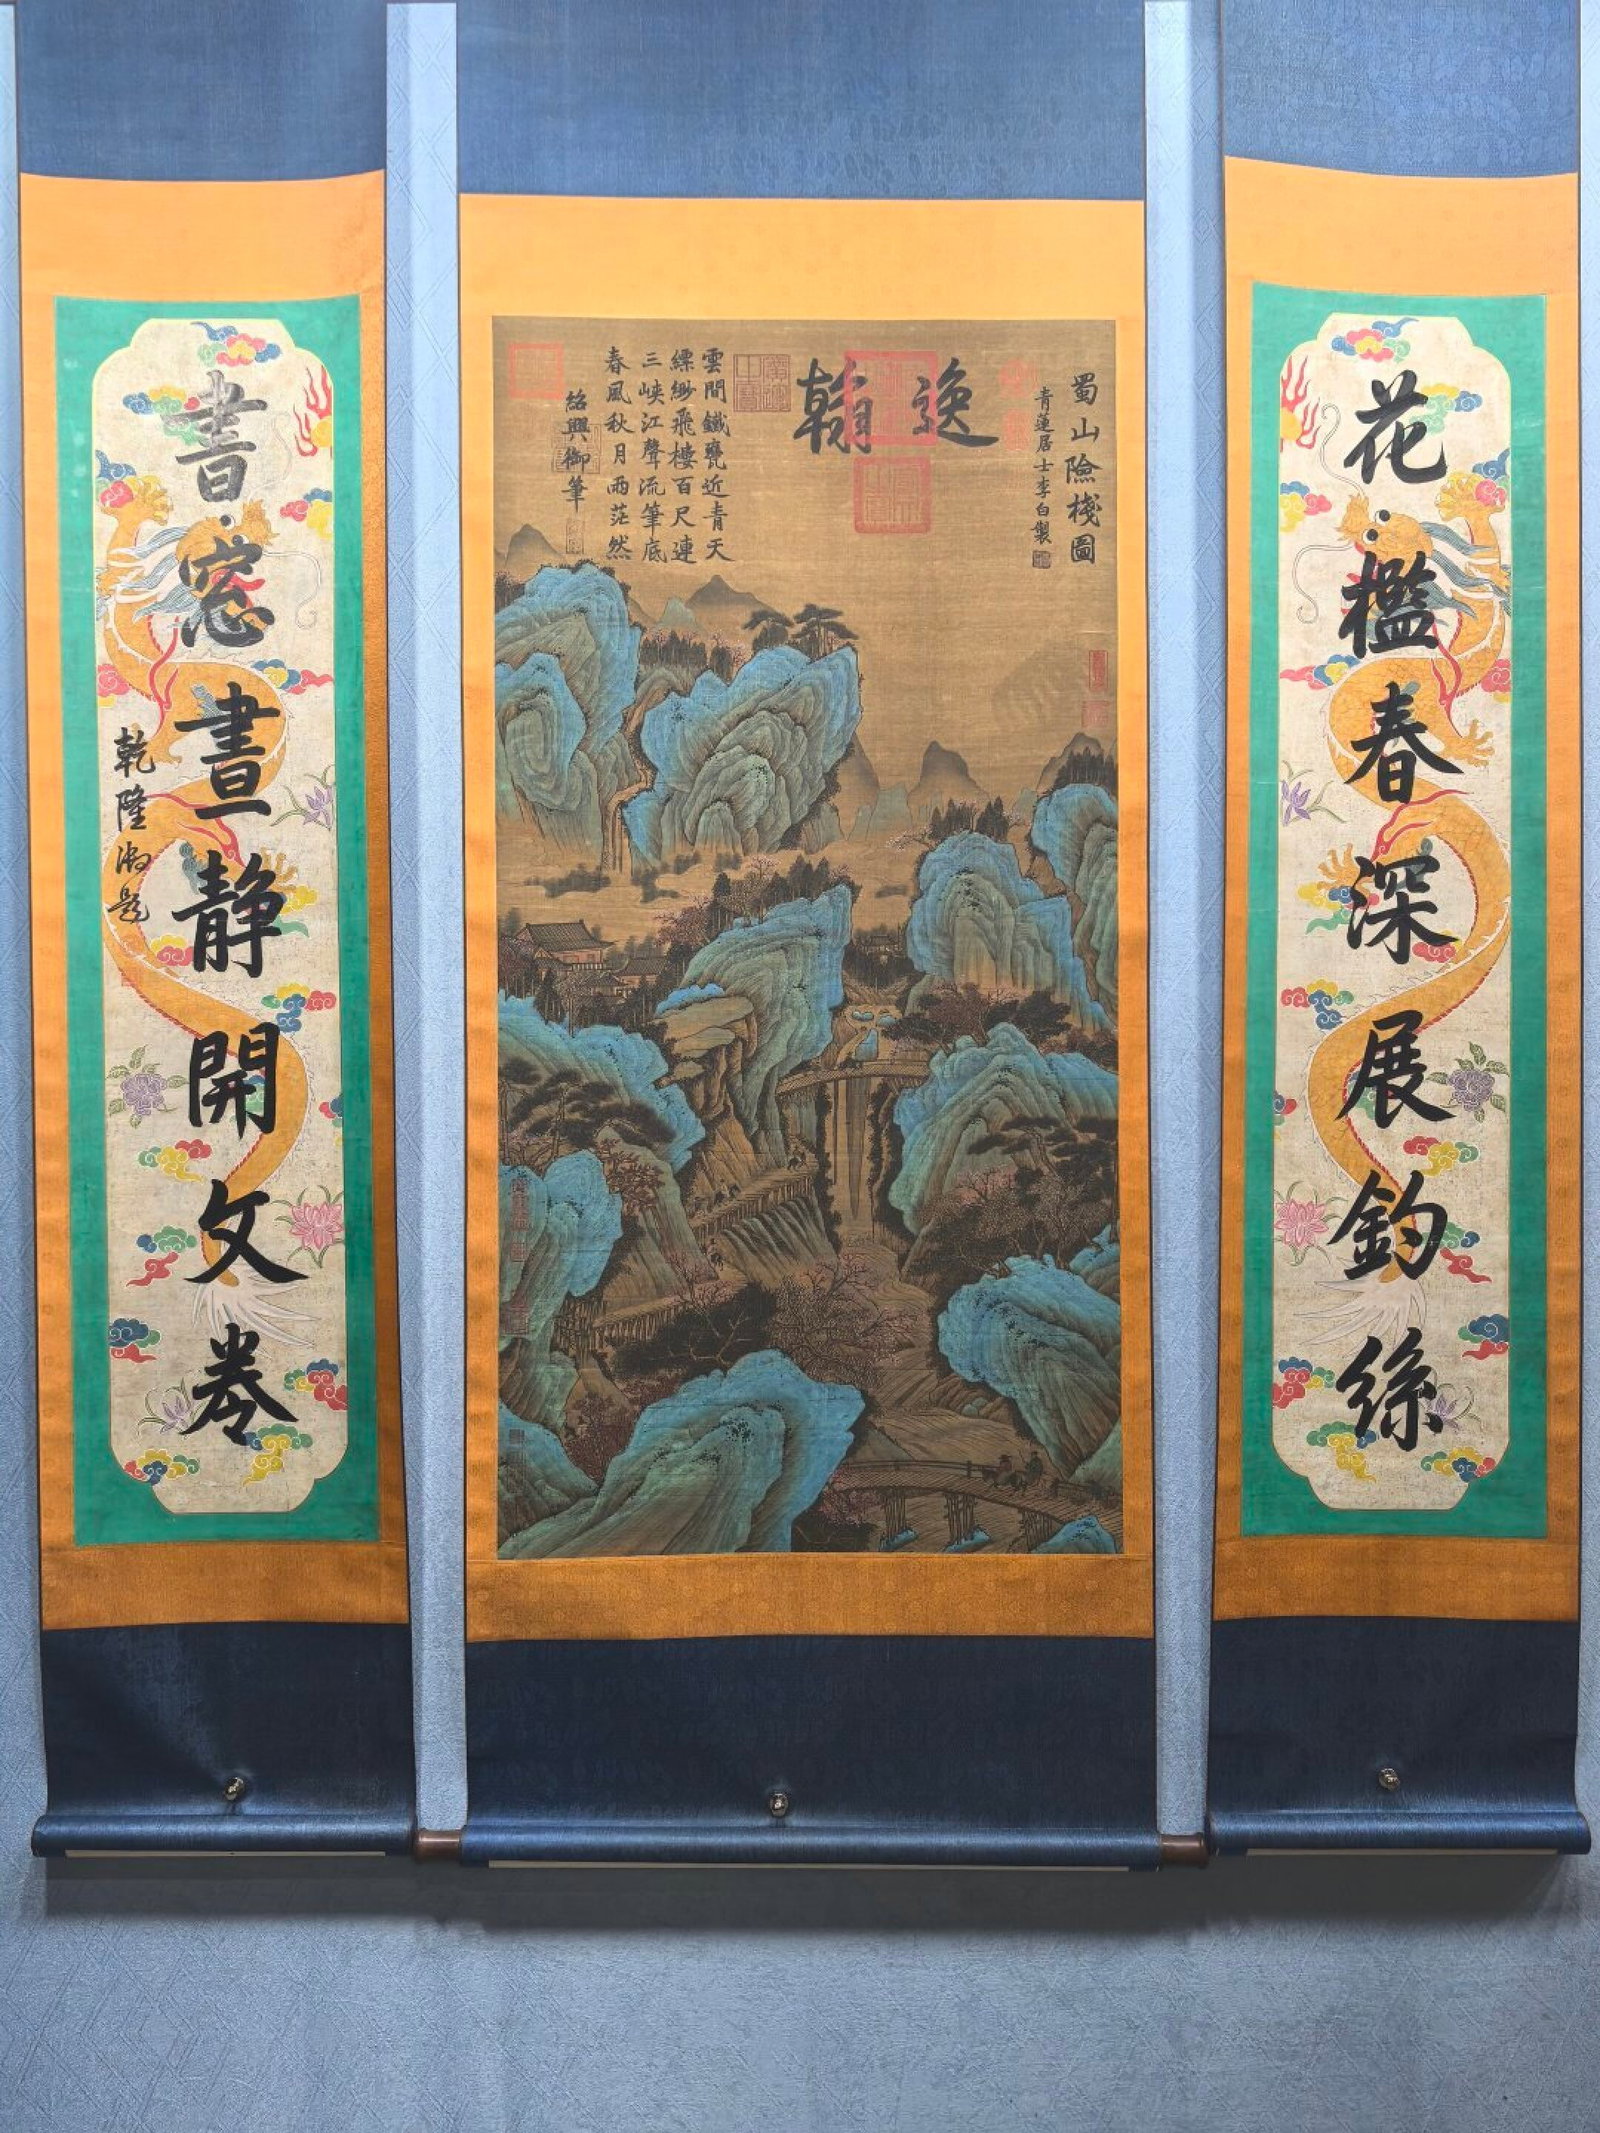 花檻春深展鈎絲
蜀山險棧圖
青蓮居士李白製
逸翰
雲間鐵甕近青天
縹緲飛樓百尺連
三峽江聲流筆底
春風秋月兩茫然
紹興御筆
書窓晝静開文卷
乾隆御題